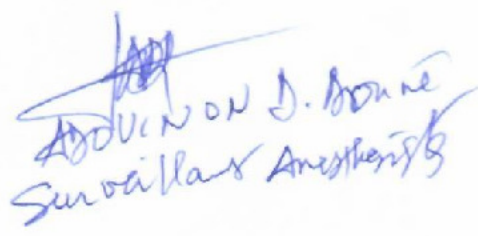 ADOUINON D. Aonné
Surveillant Anesthésiste